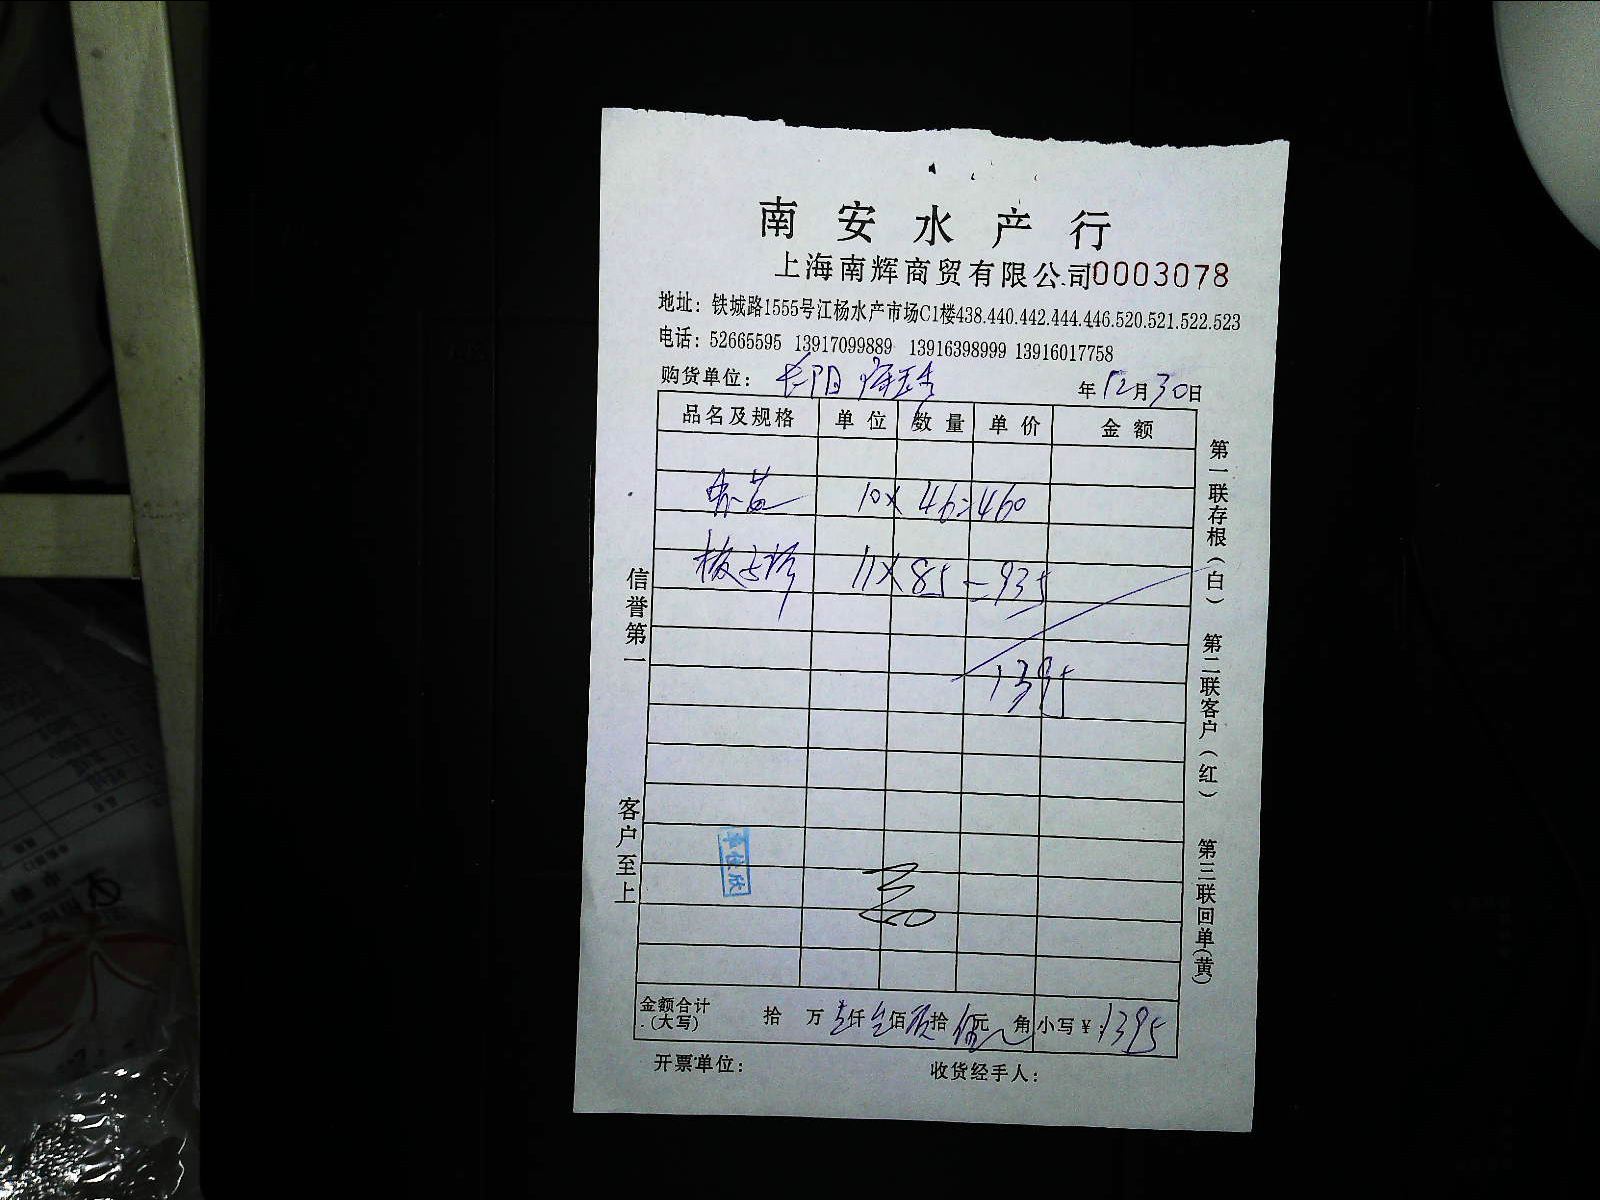 南安水产行
上海南辉商贸有限公司0003078
地址：铁城路1555号江杨水产市场C1楼438.440.442.444.446.520.521.522.523
电话：52665595 13917099889 13916398999 13916017758
购货单位：
年12月30日
品名及规格 单位 数量 单价 金额
10×46=460
11×85=935
1395
金额合计(大写) 拾 万壹仟叁佰玖拾伍元 角 小写¥：1395
开票单位： 收货经手人：
信誉第一 客户至上
第一联存根（白） 第二联客户（红） 第三联回单(黄)